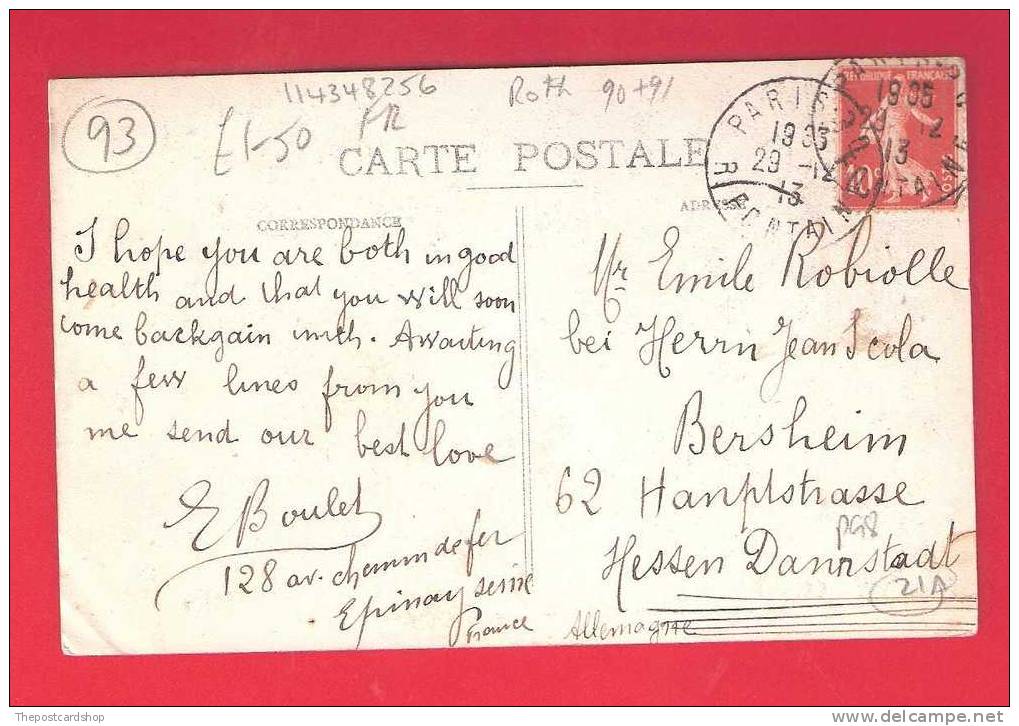 114348256
Roth 90+91
93
£1-50
FR
CARTE POSTALE
CORRESPONDANCE
ADRESSE
PARIS
R FONTAINE
19 35
29 -12
13
REPUBLIQUE FRANÇAISE
19 35
29 -12
13
FONTAINE
10c
I hope you are both in good
health and that you will soon
come backgain with. Awaiting
a few lines from you
me send our best love
E Boulet
128 av. chemin de fer
Epinay seine
France
Mr Emile Robiolle
bei Herrn Jean Scola
Bersheim
62 Hanptstrasse
Hessen Darmstadt
Allemagne
PG8
21A
Thepostcardshop
delcampe.net